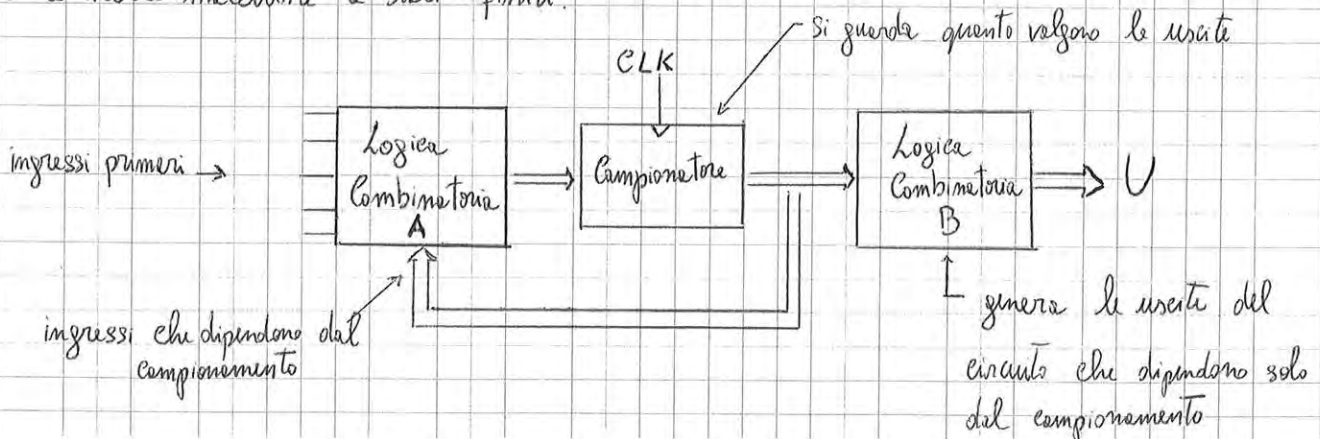 Si guarda quanto valgono le uscite
CLK
ingressi primari →
Logica
Combinatoria
A
Campionatore
Logica
Combinatoria
B
U
ingressi che dipendono dal
campionamento
genera le uscite del
circuito che dipendono solo
dal campionamento